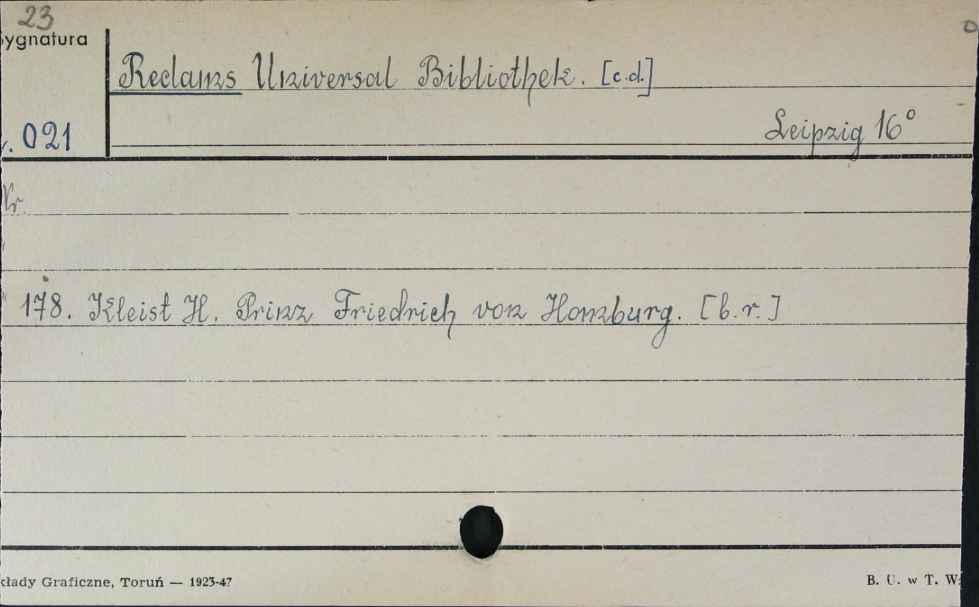 23
ygnatura
Reclams Universal Bibliothek. [c.d.]
021
Leipzig 16°
Nr.
178. Kleist H. Prinz Friedrich von Homburg. [b.r.]
kłady Graficzne, Toruń — 1923-47
B. U. w T. W